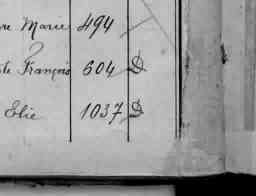 Marie 494
François 604 D
Elie 1037 D